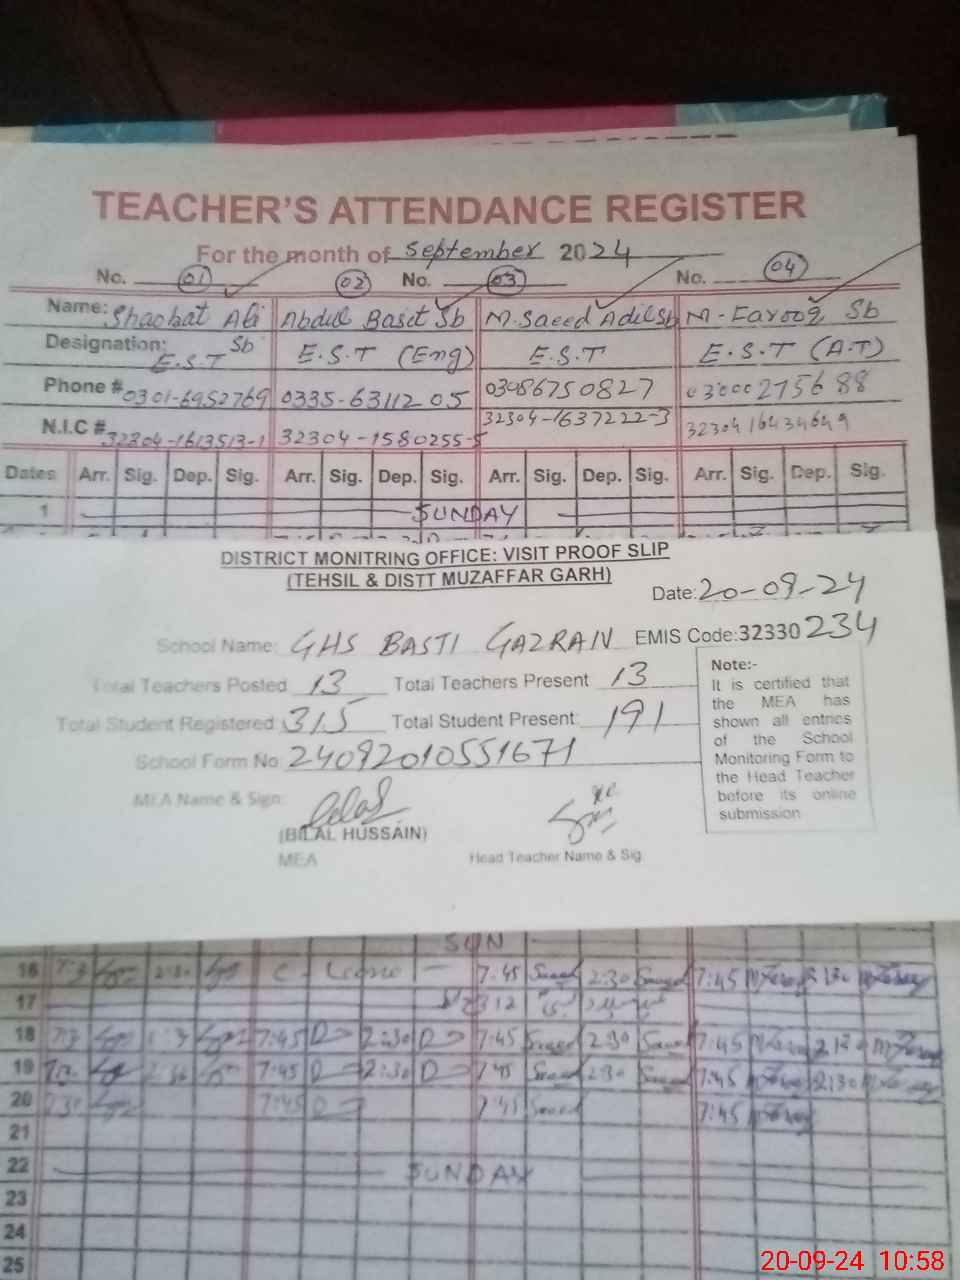 TEACHER'S ATTENDANCE REGISTER
For the month of September 2024
No. 01 02 No. 03 No. 04
Name: Shaobat Ali Sb Abdul Basit Sb M. Saeed Adil Sb M. Farooq Sb
Designation: E.S.T E.S.T (Eng) E.S.T E.S.T (A.T)
Phone # 0301-6952769 0335-6311205 03086750827 03000275688
N.I.C # 32304-1613513-1 32304-1580255-5 32304-1637222-3 32304 16434649
Dates Arr. Sig. Dep. Sig. Arr. Sig. Dep. Sig. Arr. Sig. Dep. Sig. Arr. Sig. Dep. Sig.
1 SUNDAY
DISTRICT MONITRING OFFICE: VISIT PROOF SLIP
(TEHSIL & DISTT MUZAFFAR GARH)
Date: 20-09-24
School Name: GHS BASTI GAZRAN EMIS Code: 32330234
Total Teachers Posted 13 Total Teachers Present 13
Total Student Registered: 315 Total Student Present: 191
School Form No: 24092010551671
MEA Name & Sign:
(BILAL HUSSAIN)
MEA
Head Teacher Name & Sig
Note:-
It is certified that
the MEA has
shown all entries
of the School
Monitoring Form to
the Head Teacher
before its online
submission
SUN
16 2:30 7:45 Saeed 2:30 Saeed 7:45
17
18 7:45 2:30 7:45 Saeed 2:30 Saeed 7:45 2:30
19 7:45 2:30 7:45 Saeed 2:30 Saeed 7:45 2:30
20 7:45 7:45 Saeed 7:45
21
22 SUNDAY
23
24
25
20-09-24 10:58